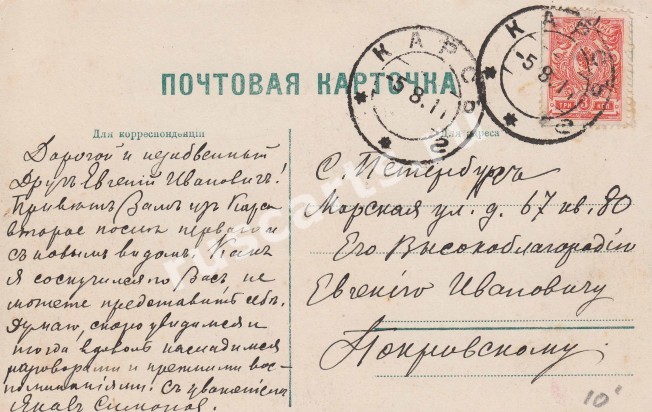 ПОЧТОВАЯ КАРТОЧКА
КАРСЪ
-5 8.11
КАРСЪ
-5 8.11
ТРИ КОП
Для корреспонденціи
Для адреса
Дорогой и незабвенный
Другъ Евгеній Ивановичъ!
Привѣтъ Вамъ изъ Карса
второе послѣ перваго
съ новымъ видомъ. Какъ
я соскучился по Васъ не
можете представить себѣ.
Думаю, скоро увидимся и
тогда вдоволь насладимся
разговорами и прежними вос-
поминаніями. Съ уваженіемъ
Яковъ Симонов.
С. Петербургъ
Морская ул. д. 67 кв. 80
Его Высокоблагородію
Евгенію Ивановичу
Покровскому
10'